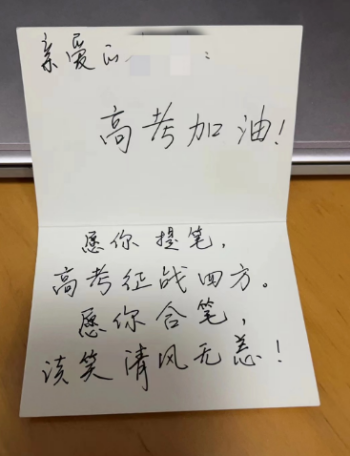 亲爱的 :
高考加油!
愿你提笔,
高考征战四方。
愿你合笔,
谈笑清风无恙!